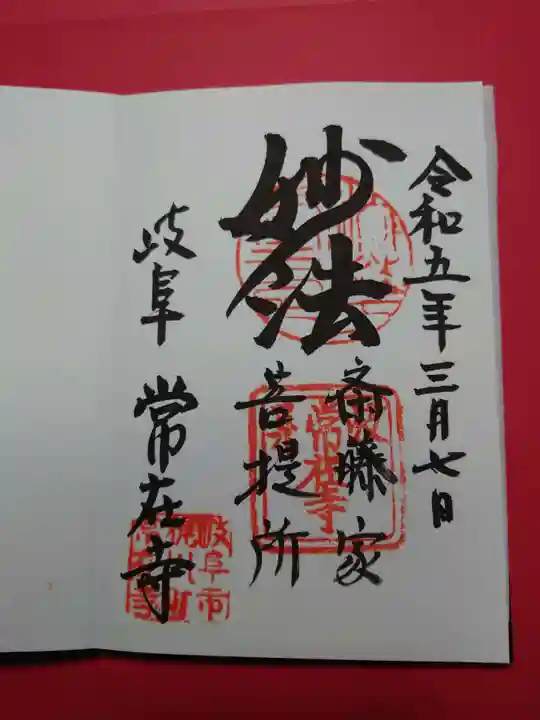 令和五年三月七日
妙法
斎藤家
菩提所
岐阜 常在寺
常在寺
岐阜市